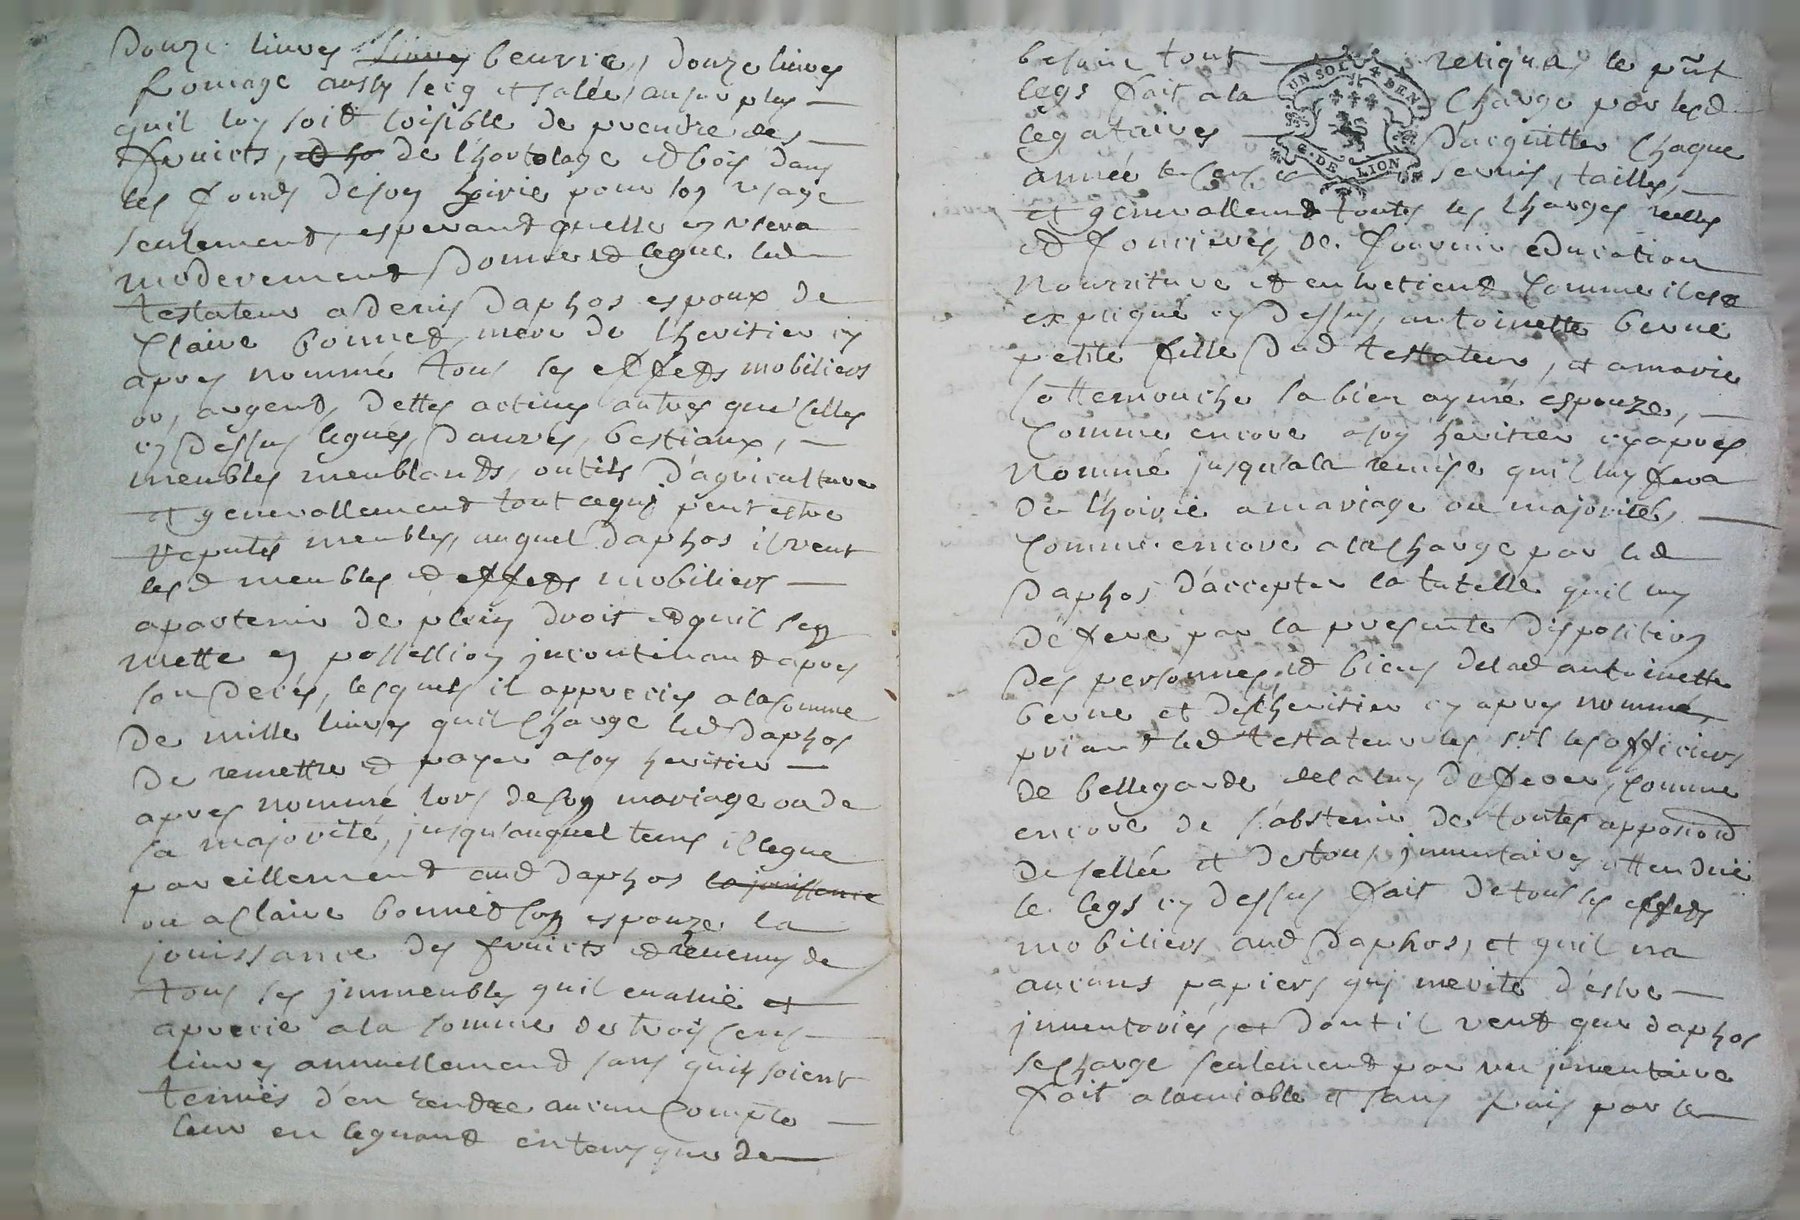 Douze livres livres beurre, douze livres
fromage aussy secq et sallé, au surplus
quil luy soit loisible de prendre des
fruicts, et ho de lhortolage et bois dans
les fonds de son hoirie pour son usage
seulement, esperant quelle en usera
moderement Donne et legue led
testateur a denis Daphos espoux de
Claire bonnet, mere de lheritier cy
apres nommé tous les effets mobiliers
or, argent, dettes actives autres que celles
cy dessus legués, danrés, bestiaux,
meubles meublants, outils d'agriculture
et generallement tout ce qui peut estre
reputés meubles, auquel Daphos il veut
lesd meubles et effets mobiliers
apartenir de plein droit et quil sen
mette en possession incontinant apres
son decés, lesquels il apprecies a la somme
de mille livres quil charge led Daphos
de remettre et payer a son heritier
apres nommé lors de son mariage ou de
sa majorité, jusqu'auquel tems il legue
pareillement aud Daphos la jouissance
ou a Claire bonnet son espouze la
jouissance des fruicts et revenus de
tous ses jmmeubles quil evalue et
apprecie a la somme de trois cens
livres annuellement sans quils soient
tenuës d'en rendre aucun compte
leur en leguant en tems que de
besoin tout reliqua le pnt
legs fait a la charge par lesd
legataires d'acquitter chaque
année les cens et servis, tailles,
et generallement toutes les charges reelles
et foncieres, de fournir education
nourriture et entretient comme il est
expliqué cy dessus, antoinette berne
petite fille dud testateur, et a marie
sottemouche sa bien aymé espouze,
comme encore a son heritier cy apres
nommé jusqu'a la remise quil luy fera
de lhoirie a mariage ou majorités
comme encore a la charge par led
Daphos d'accepter la tutelle quil luy
defere par la presente disposition
des personnes et biens de lad antoinette
berne et de lheritier cy apres nommé,
priant led testateur les srs les officiers
de bellegarde de la luy deferer, comme
encore de s'abstenir de toutes apposion
de sellée et de tous jnventaires attendüe
le legs cy dessus fait de tous les effets
mobiliers aud Daphos, et quil na
aucuns papiers qui merite d'estre
jnventoriés, et dont il veut que daphos
se charge seulement par un jnventaire
fait a lamiable et sans frais par le
UN SOL 4 DEN
G. DE LION